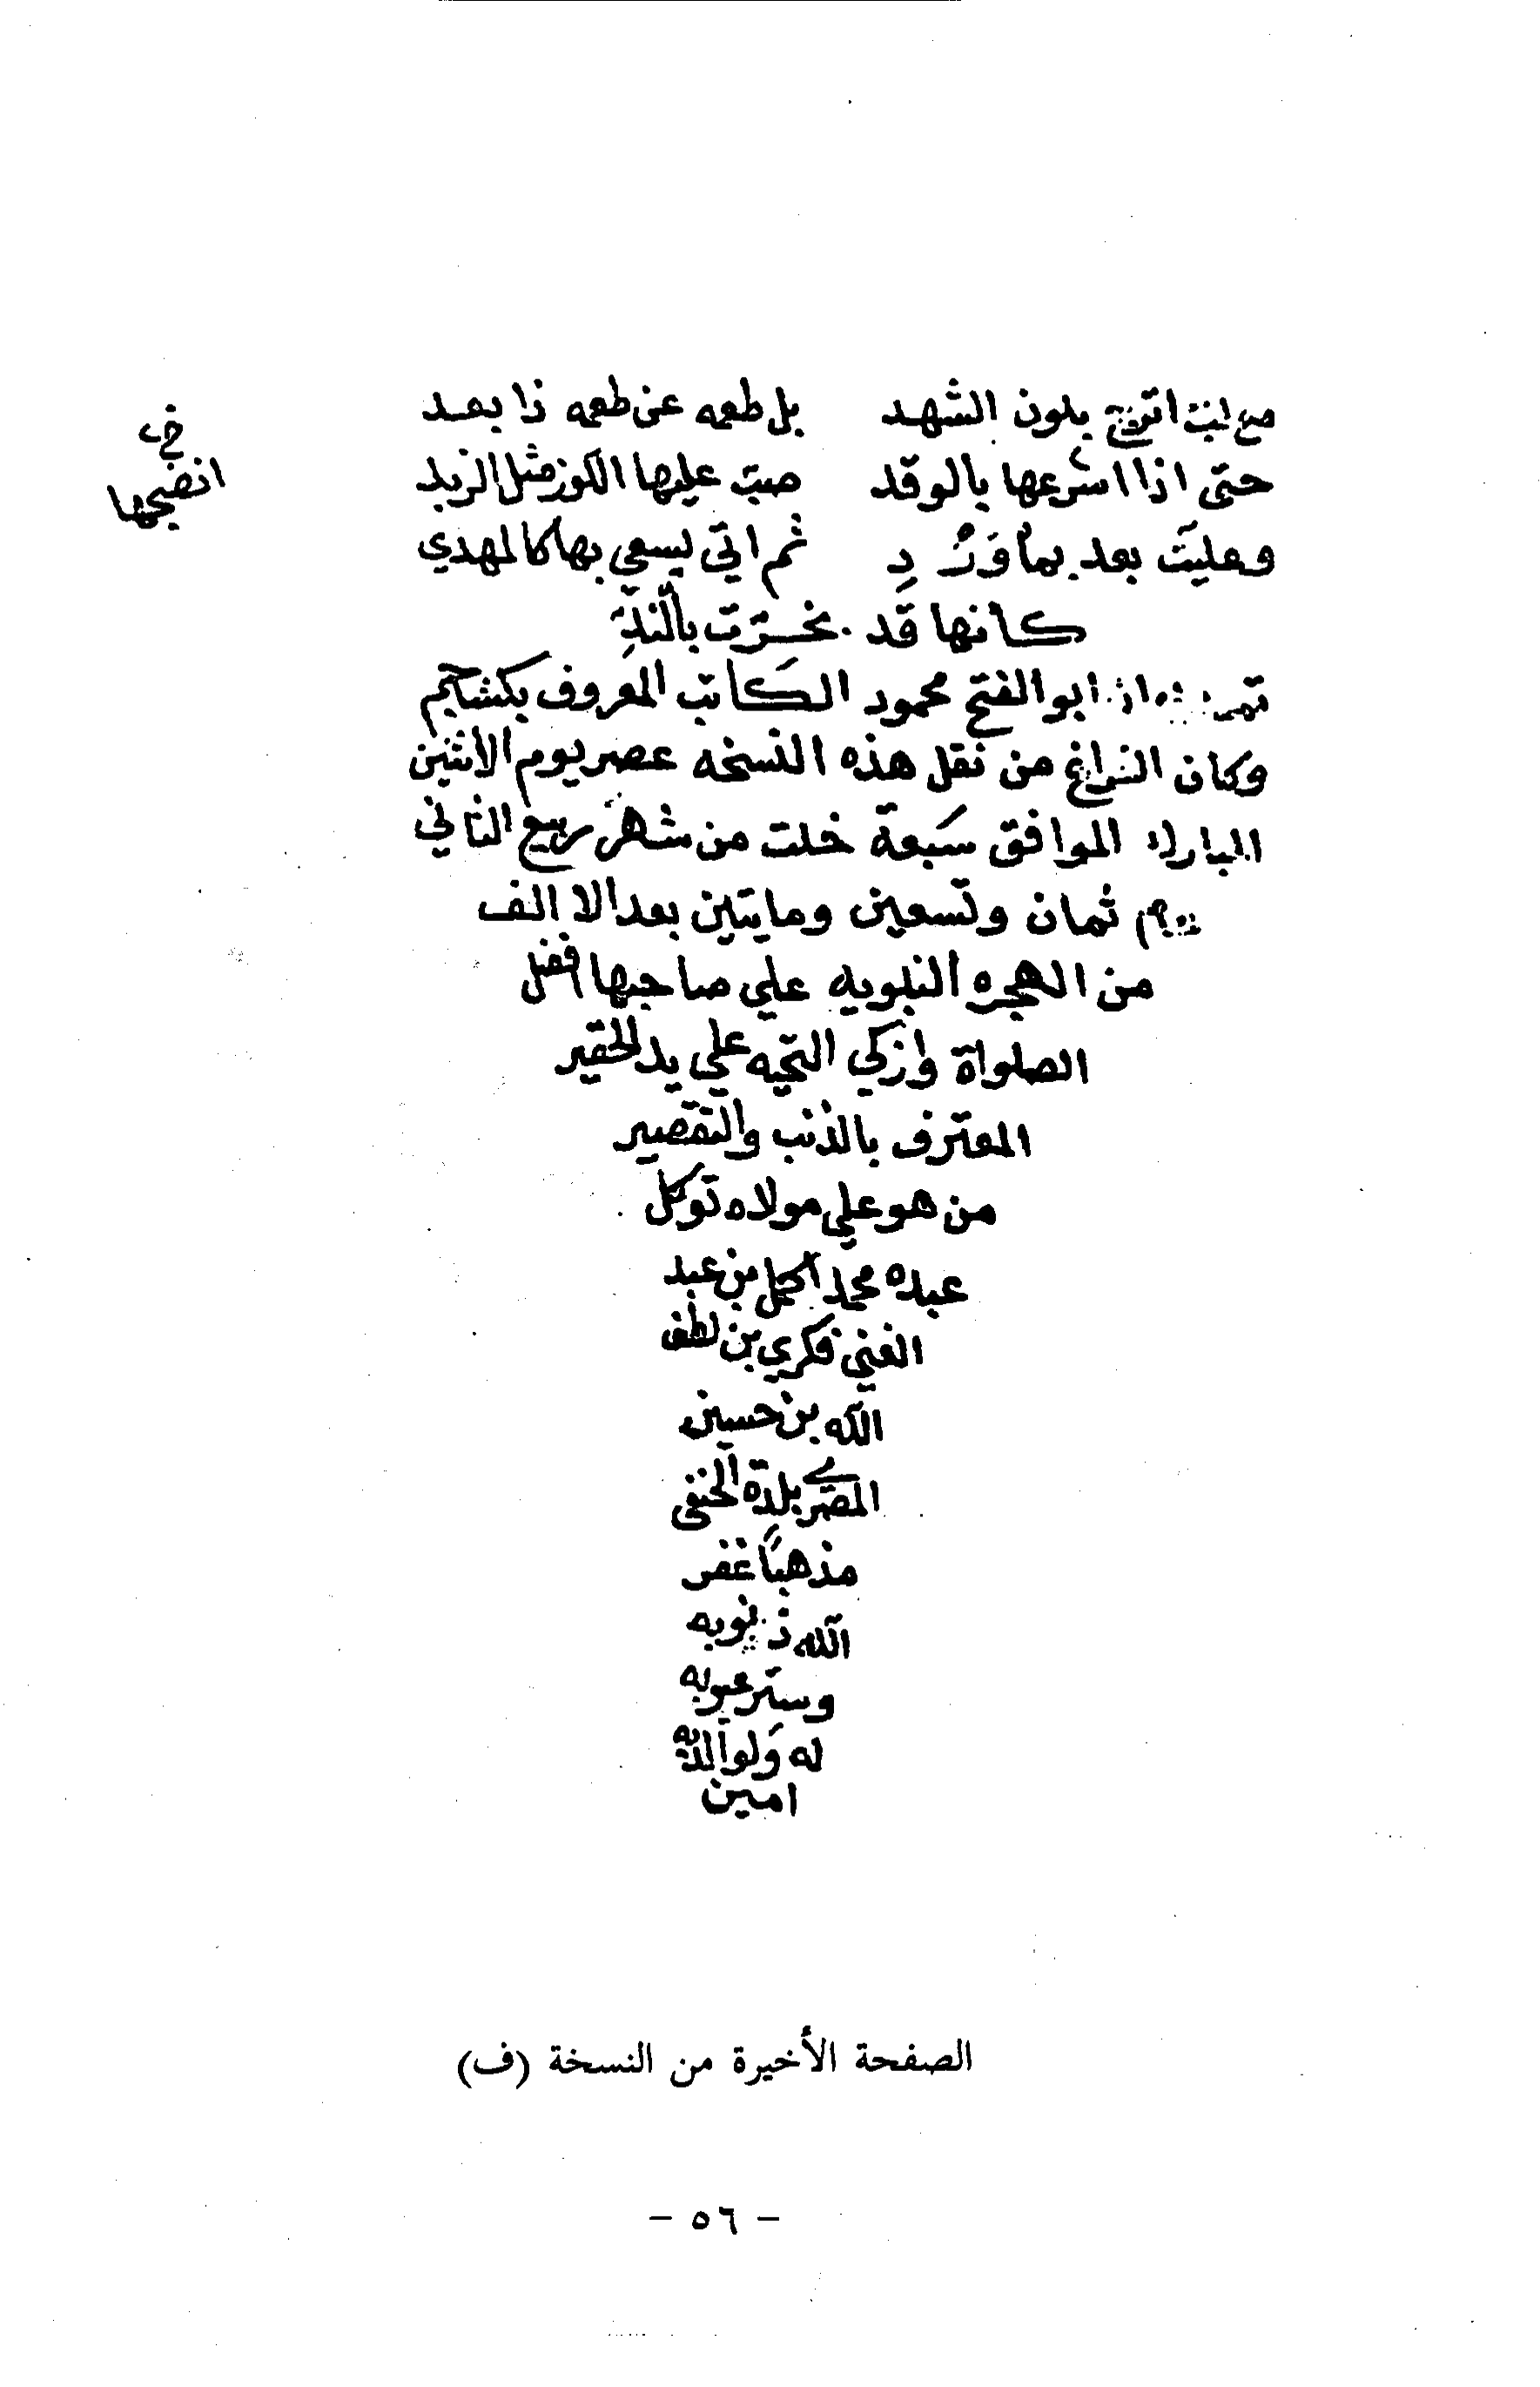 مع لبن اترنج بلون الشهد بل طعمه عن طعمه ذا بعد
حتى اذا اسرعها بالوقد صب عليها اللوز مثل الزبد
وعليت بعد بماورد ثم اتي يسعي بها كالمهدي
كانها قد بخرت بالند
ابو الفتح محمود الكاتب المعروف بكشاجم
وكان الفراغ من نقل هذه النسخه عصر يوم الاثنين
المبارك الموافق سبعة خلت من شهر ربيع الثاني
ثمان وتسعين ومايتين بعد الالف
من الهجره النبويه علي صاحبها افضل
الصلواة وازكي التحيه علي يد الحقير
المعترف بالذنب والتقصير
من هو علي مولاه توكل
عبده محمد اكمل بن عبد
الغني فكري بن لطف
الله بن حسين
المصري بلدة الحنفي
مذهبًا غفر
الله ذنوبه
وستر عيوبه
له ولوالديه
امين
في
انضجها
الصفحة الأخيرة من النسخة (ف)
- ٥٦ -